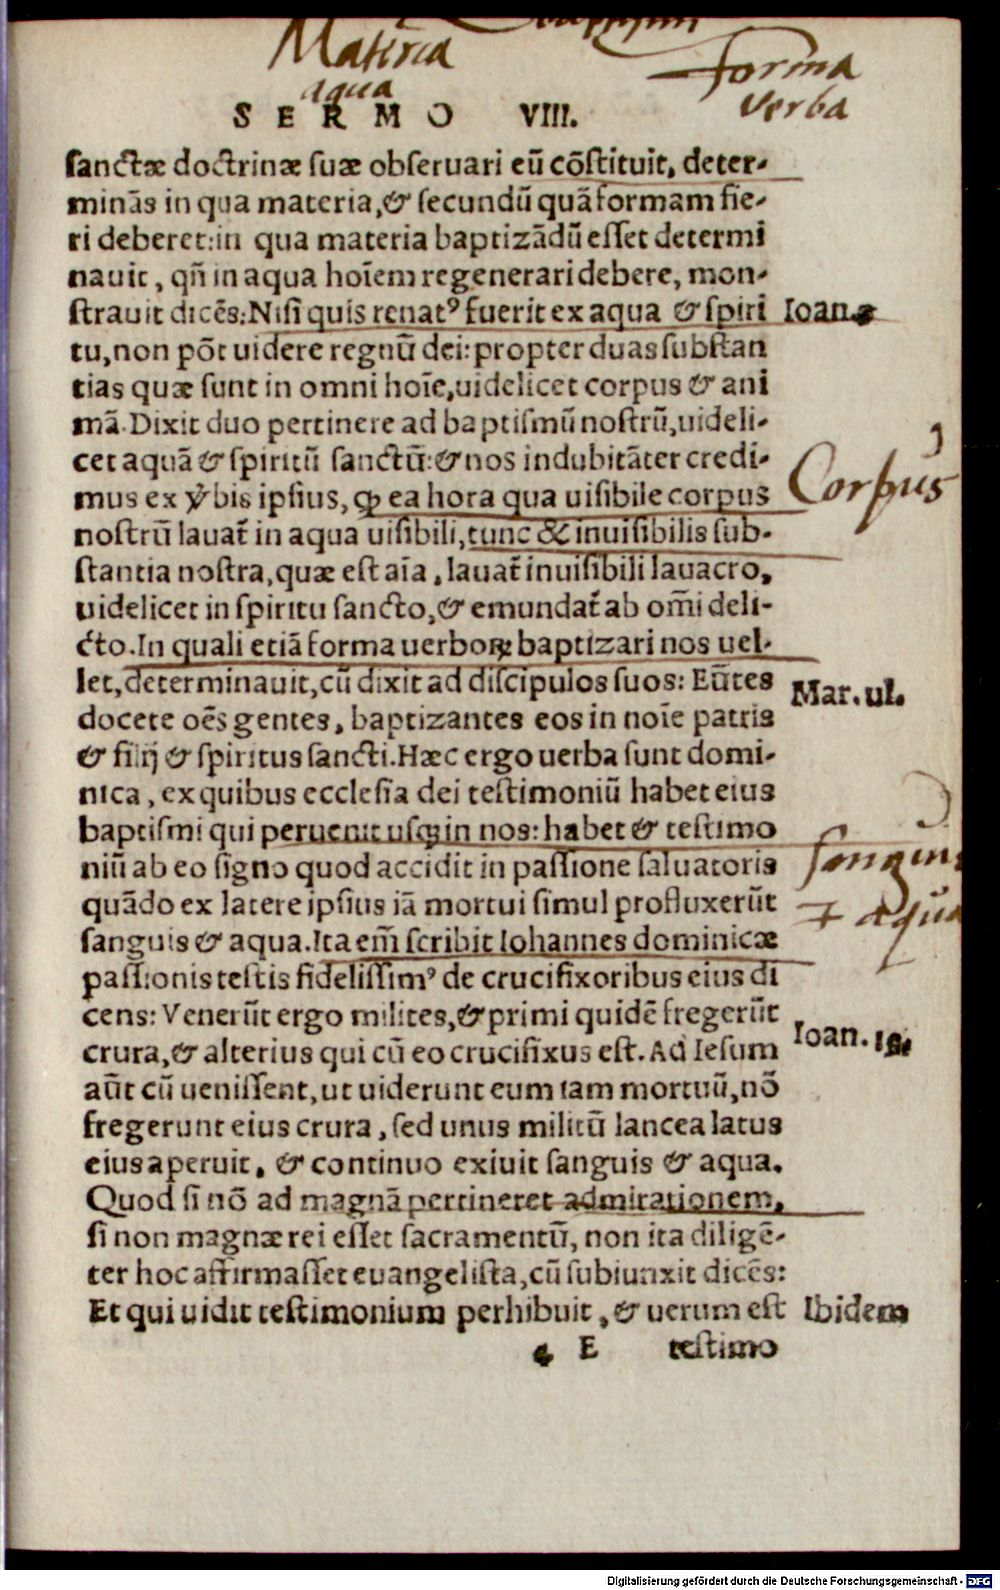 Materia
aqua
forma
verba
SERMO VIII.
sanctæ doctrinæ suæ obseruari eū cōstituit, deter-
minās in qua materia, & secundū quā formam fie-
ri deberet: in qua materia baptizādū esset determi
nauit, qñ in aqua hoīem regenerari debere, mon-
strauit dicēs: Nisi quis renatꝰ fuerit ex aqua & spiri
Ioan. 3
tu, non pōt uidere regnū dei: propter duas substan
tias quæ sunt in omni hoīe, uidelicet corpus & ani
mā. Dixit duo pertinere ad baptismū nostrū, uideli-
cet aquā & spiritū sanctū: & nos indubitāter credi-
mus ex v̄bis ipsius, ꝙ ea hora qua uisibile corpus
Corpus
nostrū lauat᷑ in aqua uisibili, tunc & inuisibilis sub-
stantia nostra, quæ est aīa, lauat᷑ inuisibili lauacro,
uidelicet in spiritu sancto, & emundat᷑ ab om̄i deli-
cto. In quali etiā forma uerboꝝ baptizari nos uel-
let, determinauit, cū dixit ad discipulos suos: Eūtes
Mar. ul.
docete oēs gentes, baptizantes eos in noīe patris
& filij & spiritus sancti. Hæc ergo uerba sunt domi-
nica, ex quibus ecclesia dei testimoniū habet eius
baptismi qui peruenit usꝙ in nos: habet & testimo
niū ab eo signo quod accidit in passione saluatoris
sanguin
quādo ex latere ipsius iā mortui simul profluxerūt
+ aqua
sanguis & aqua. Ita em̄ scribit Iohannes dominicæ
passionis testis fidelissimꝰ de crucifixoribus eius di
cens: Venerūt ergo milites, & primi quidē fregerūt
Ioan. 19.
crura, & alterius qui cū eo crucifixus est. Ad Iesum
aūt cū uenissent, ut uiderunt eum iam mortuū, nō
fregerunt eius crura, sed unus militū lancea latus
eius aperuit, & continuo exiuit sanguis & aqua.
Quod si nō ad magnā pertineret admirationem,
si non magnæ rei esset sacramentū, non ita diligē-
ter hoc affirmasset euangelista, cū subiunxit dicēs:
Et qui uidit testimonium perhibuit, & uerum est
Ibidem
E testimo
Digitalisierung gefördert durch die Deutsche Forschungsgemeinschaft - DFG